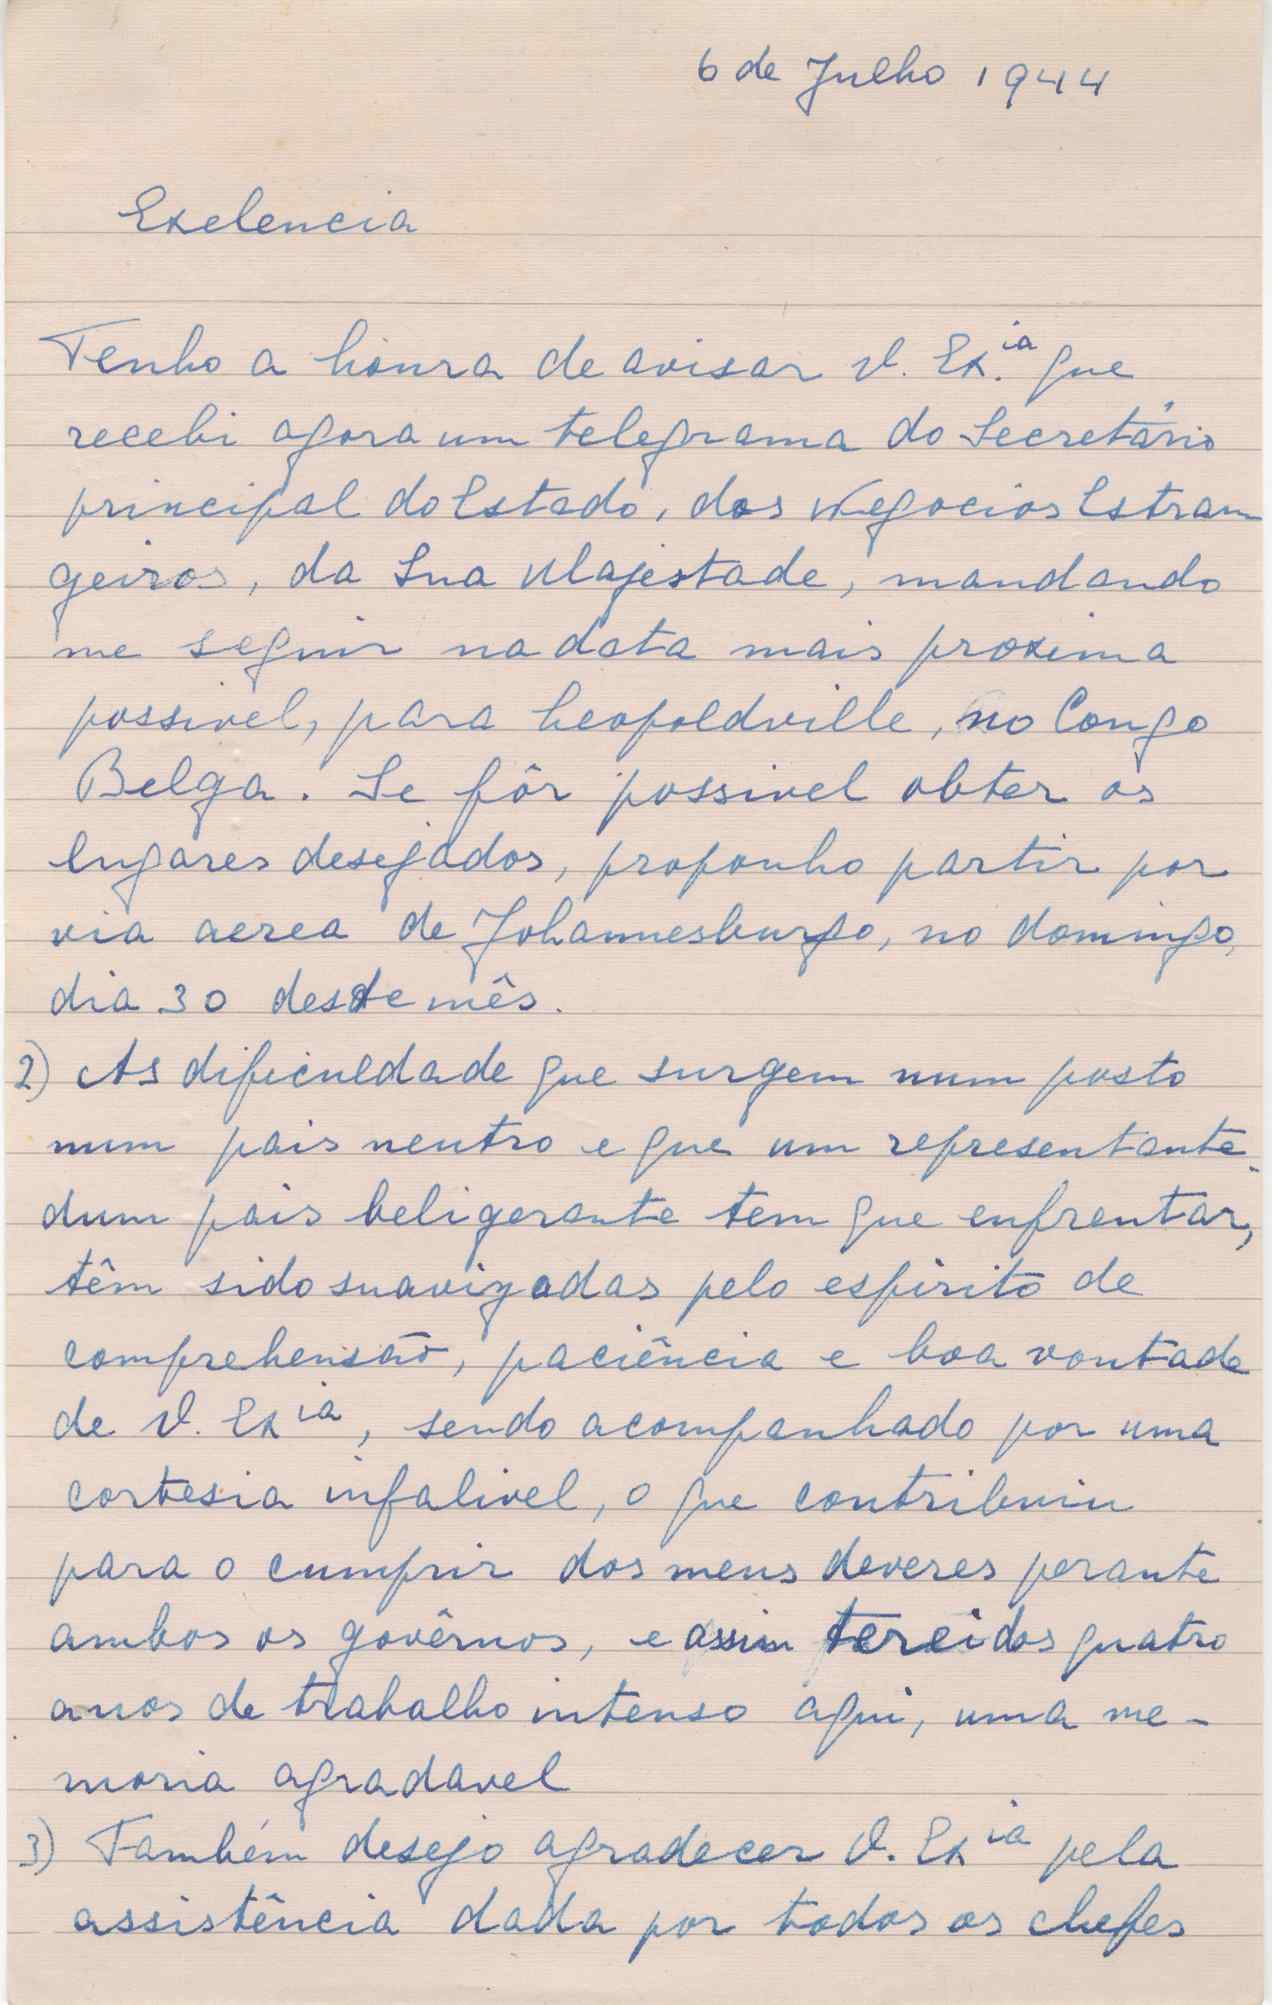 6 de Julho 1944
Exelencia
Tenho a honra de avisar V. Ex.ia que
recebi agora um telegrama do Secretário
principal do Estado, dos Negocios Estran
geiros, da Sua Majestade, mandando
me seguir na data mais proxima
possivel, para Leopoldville, no Congo
Belga. Se fôr possivel obter os
lugares desejados, proponho partir por
via aerea de Johannesburgo, no domingo,
dia 30 deste mês.
2) As dificuldade que surgem num posto
num pais neutro e que um representante
dum pais beligerante tem que enfrentar,
têm sido suavizadas pelo espirito de
comprehensão, paciência e boa vontade
de V. Exia, sendo acompanhado por uma
cortesia infalivel, o que contribuiu
para o cumprir dos meus deveres perante
ambos os govêrnos, e assim terei dos quatro
anos de trabalho intenso aqui, uma me-
moria agradavel
3) Também desejo agradecer V. Exia pela
assistência dada por todos os chefes